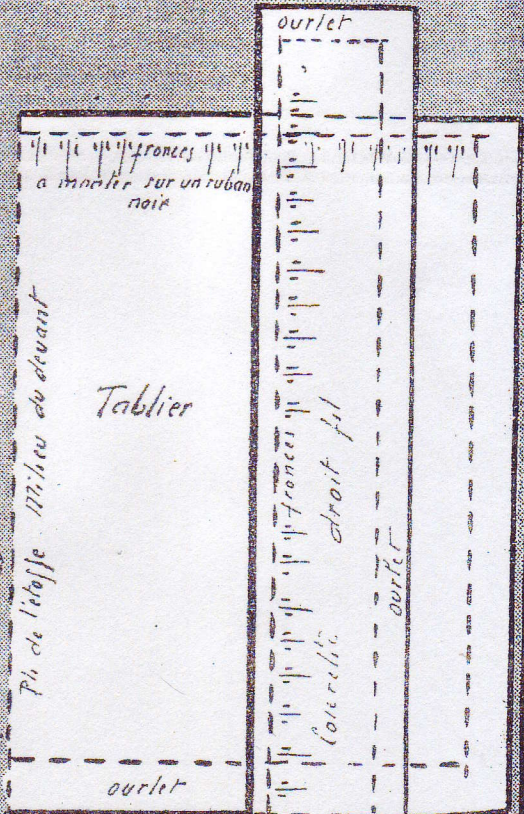 ourlet
fronces
a monter sur un ruban
noir
Pli de l'étoffe Milieu du devant
Tablier
fronces
droit fil
ourlet
ourlet